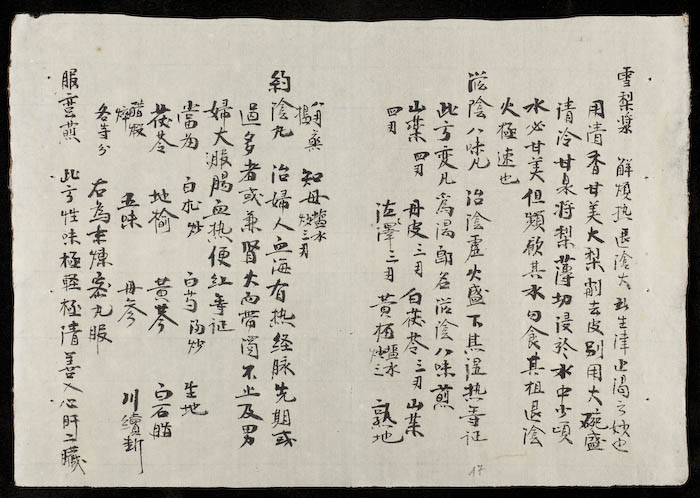 雪梨漿 解煩热退陰火此生津止渴之妙也
用清香甘美大梨削去皮别用大碗盛
清冷甘泉将梨薄切浸於水中少頃
水必甘美但頻飲其水勿食其柤退陰
火極速也
滋陰八味凡 治陰虛火盛下焦湿热等証
此方变凡為湯即名滋陰八味煎
山藥四刃 丹皮三刃 白茯苓三刃 山茱
四刃 泫澤三刃 黄柏塩水炒三 孰地
八刃 知母塩水炒三刃
約陰丸 治婦人血海有热経脉先期或
過多者或兼腎火而带濁不止及男
婦大服腸血热便红等证
當为 白朮炒 白芍酒炒 生地
茯苓 地榆 黄芩 白石脂
醋煅 五味 丹参 川續斷
各等分 右為末煉蜜丸服
服蛮煎 此方性味極軽極清善入心肝二臓
17